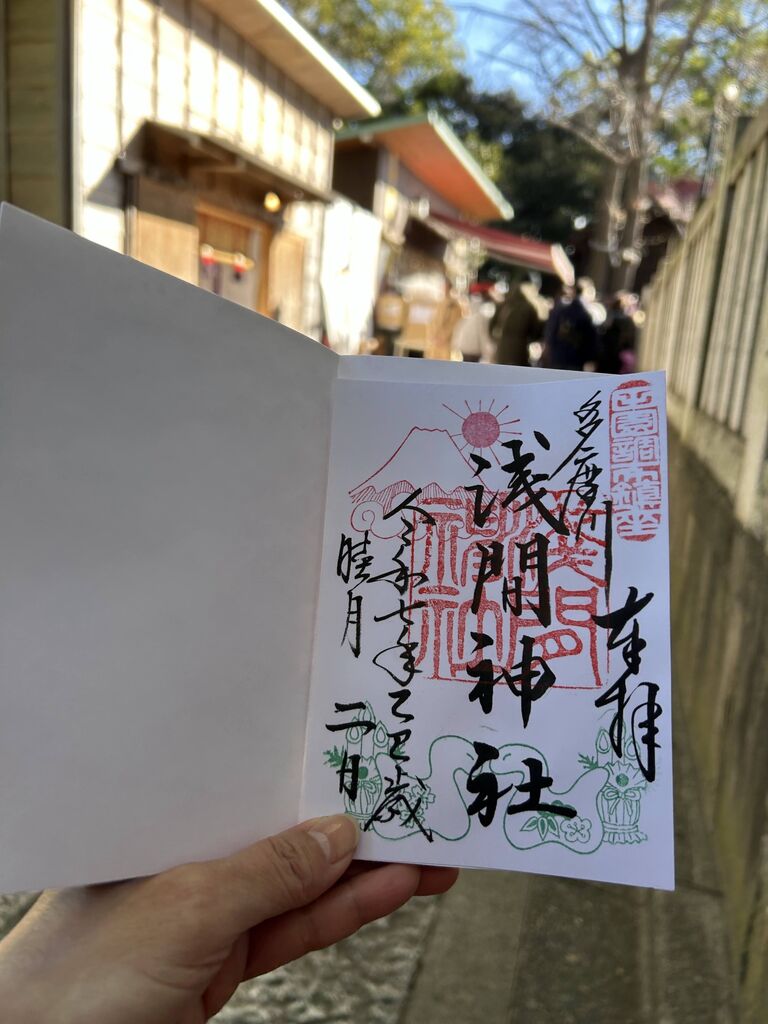 調布鎮座
奉拝
多摩川
浅間神社
令和七年乙巳歳
睦月 二日